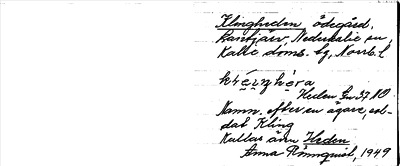 Klingheden, ödegård,
Rantjärv, Nederkalix sn,
Kalix doms. bg, Norrb. l
kléinghèra
Heden Gv 37 NO
Namn. efter en ägare, sol-
dat Kling
Kallas även Heden
Anna Rönnquist, 1949